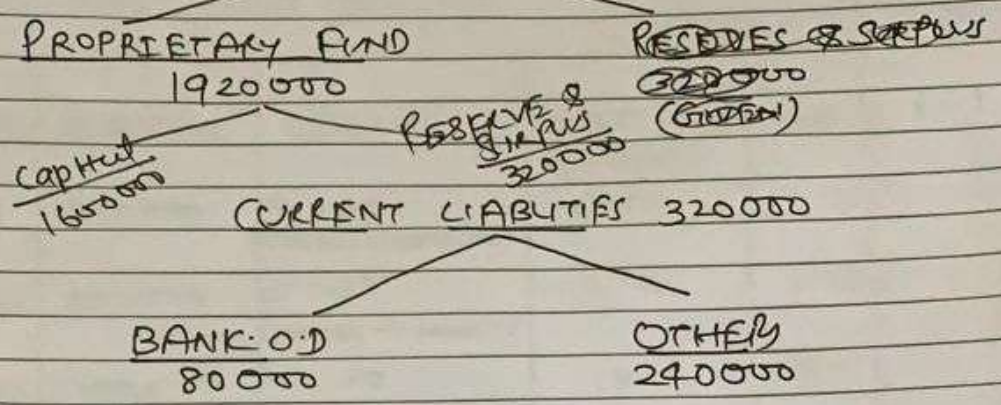 PROPRIETARY FUND
1920000
RESERVES & SURPLUS
320000
(GIVEN)
RESERVE &
SURPLUS
320000
1600000
CURRENT LIABLITIES 320000
BANK O.D
80000
OTHER
240000